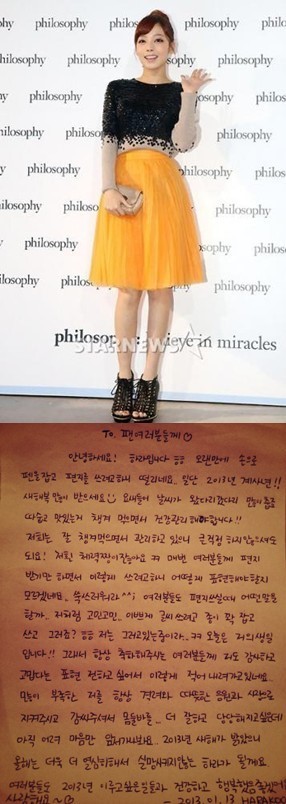 philosophy
philosophy
philosophy
philosophy
philosophy
philosophy
philosophy
philosophy: believe in miracles
STARNEWS
To. 팬여러분들께♡
안녕하세요! 하라입니다 ㅎㅎ 오랜만에 손으로
펜을잡고 편지를 쓰려고하니 떨리네요. 일단 2013년 계사년!!
새해복 많이 받으세요 요새들어 날씨가 왔다리갔다리 많이들춥죠
따습고 맛있는거 챙겨 먹으면서 건강관리해야합니다!!
저희는 잘 챙겨먹으면서 관리하고 있으니 걱정 하지않으셔도
되요! 저흰 체력짱이잖아요 ㅋㅋ 매번 여러분들께 편지
받기만 하면서 이렇게 쓰려고하니 어떻게 표현해야할지
모르겠네요. ^^; 여러분들도 편지쓰실때 어떤말을
할까.. 저처럼 고민고민.. 이쁘게 글씨 쓰려고 종이 꽉 잡고
쓰고 그러죠? ㅎㅎ 저는 그러고있는중이라.. ㅋㅋ 오늘은 저의생일
입니다!! 그래서 항상 축하해주시는 여러분들께 저도 감사하고
고맙다는 표현 전하고 싶어서 이렇게 적어 내려가고있네요.
많이 부족한 저를 항상 격려와 따뜻한 응원과 사랑으로
지켜주시고 감싸주셔서 몸둘바를.. 더 잘하고 당당해지고싶은데
아직 마음만 앞서가나봐요.. 2013년 새해가 밝았으니
올해는 더욱 더 열심히해서 실망시키지않는 하라가 될게요
여러분들도 2013년 이루고싶은일들과 건강하고 행복했음좋겠어요
사랑해요~♡ - 2013. 1. 13 HARAKOO